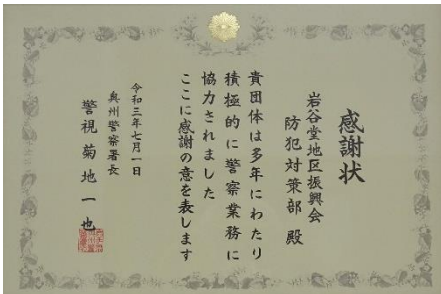 感謝状
岩谷堂地区振興会
防犯対策部 殿
貴団体は多年にわたり
積極的に警察業務に
協力されました
ここに感謝の意を表します
令和三年七月一日
奥州警察署長
警視 菊地一也